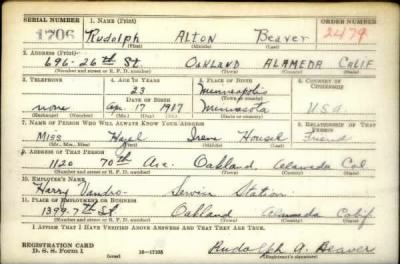 SERIAL NUMBER 1. NAME (Print) ORDER NUMBER
1706 Rudolph ALTON Beaver 2479
(First) (Middle) (Last)
2. ADDRESS (Print)
696-26th St. OAKLAND ALAMEDA CALIF
(Number and street or R. F. D. number) (Town) (County) (State)
3. TELEPHONE 4. AGE IN YEARS 5. PLACE OF BIRTH 6. COUNTRY OF CITIZENSHIP
23 Minneapolis
DATE OF BIRTH (Town or county)
none Apr. 17 1917 Minnesota U.S.A.
(Exchange) (No.) (Mo.) (Day) (Yr.) (State or country)
7. NAME OF PERSON WHO WILL ALWAYS KNOW YOUR ADDRESS 8. RELATIONSHIP OF THAT PERSON
Miss Hazel Irene Housel Friend
(Mr., Mrs., Miss) (First) (Middle) (Last)
9. ADDRESS OF THAT PERSON
1120 70th Ave. Oakland, Alameda Cal
(Number and street or R. F. D. number) (Town) (County) (State)
10. EMPLOYER'S NAME
Harry Service Station
11. PLACE OF EMPLOYMENT OR BUSINESS
1399-7th St Oakland Alameda Calif.
(Number and street or R. F. D. number) (Town) (County) (State)
I AFFIRM THAT I HAVE VERIFIED ABOVE ANSWERS AND THAT THEY ARE TRUE.
REGISTRATION CARD
D. S. S. Form 1 (over) 16-17105 Rudolph A. Beaver
(Registrant's signature)